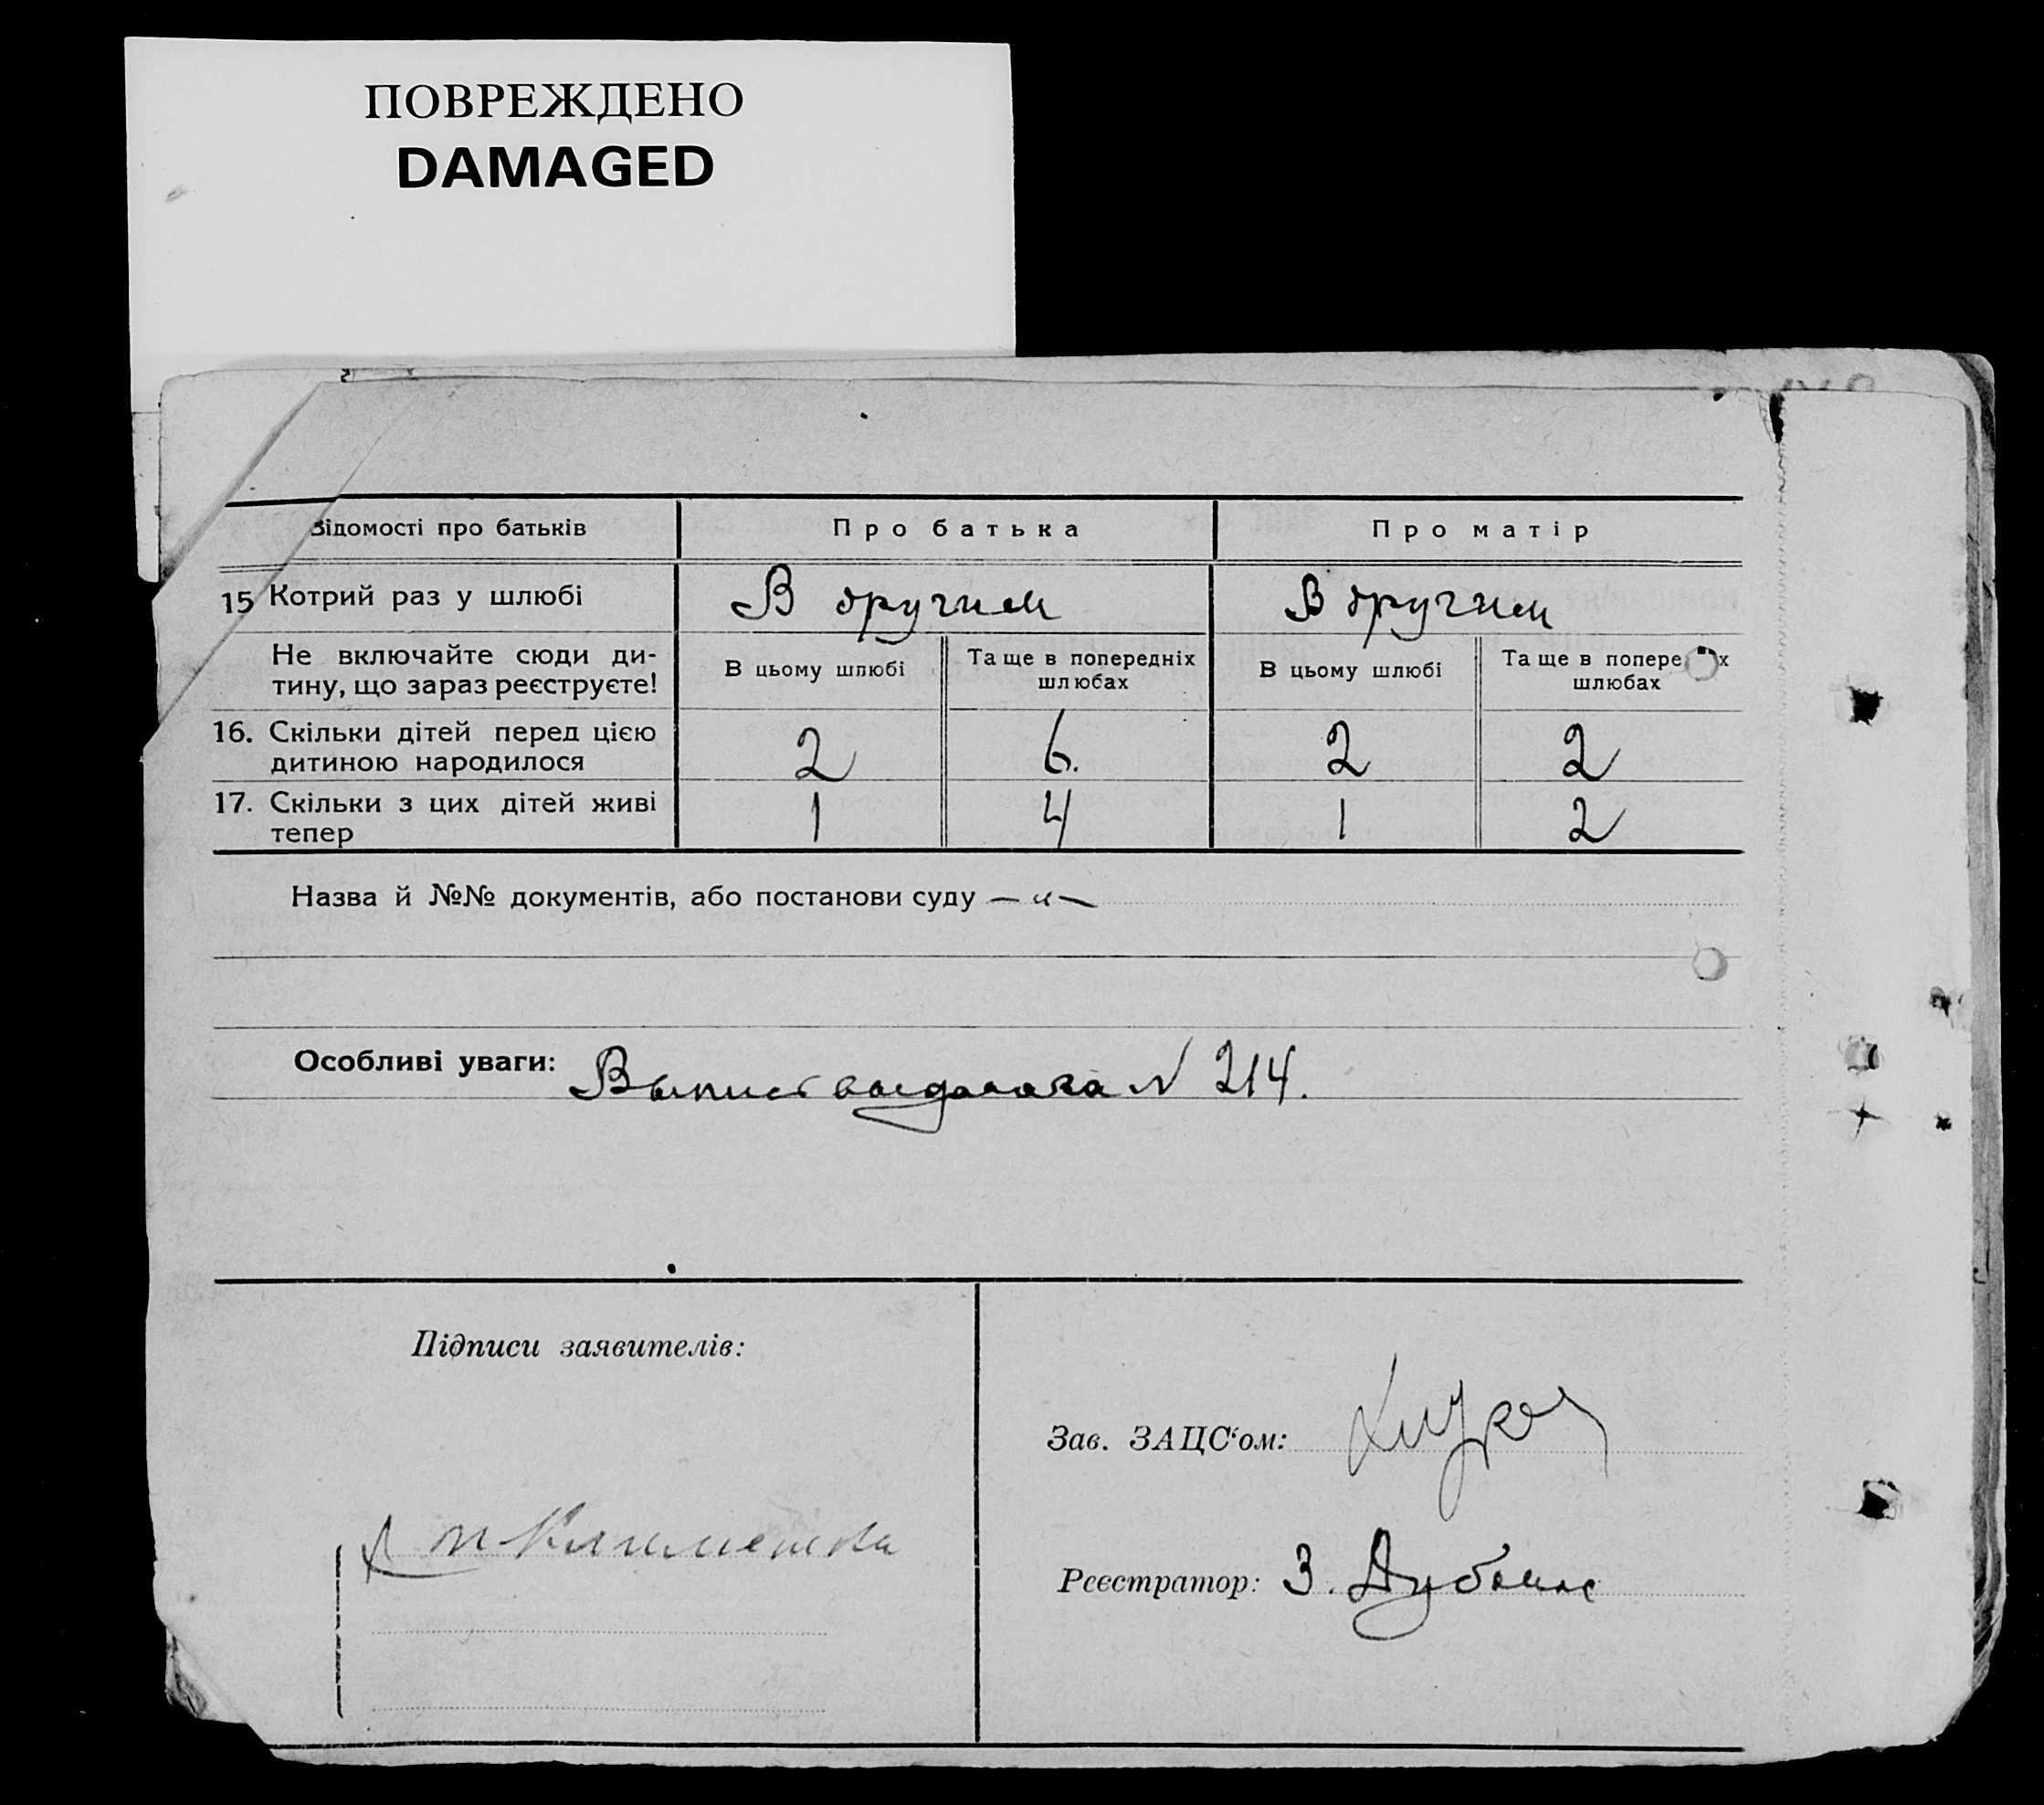 ПОВРЕЖДЕНО
DAMAGED
Відомості про батьків
Про батька
Про матір
15 Котрий раз у шлюбі
В другим
В другим
Не включайте сюди ди-
тину, що зараз реєструєте!
В цьому шлюбі
Та ще в попередніх
шлюбах
В цьому шлюбі
Та ще в попере х
шлюбах
16. Скільки дітей перед цією
дитиною народилося
2
6.
2
2
17. Скільки з цих дітей живі
тепер
1
4
1
2
Назва й №№ документів, або постанови суду — „ —
Особливі уваги:
N 214.
Підписи заявителів:
Зав. ЗАЦС‘ом:
Реєстратор: З.